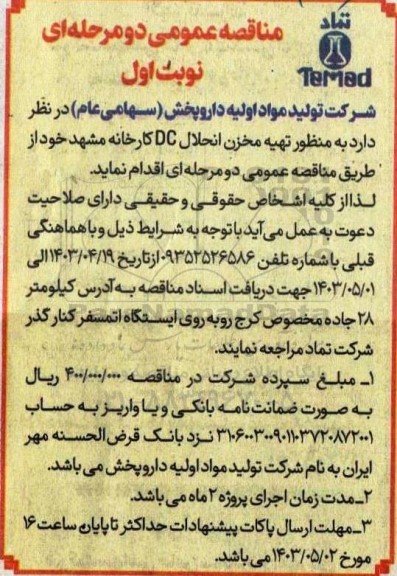 تماد
Temad
مناقصه عمومی دو مرحله‌ای
نوبت اول
شرکت تولید مواد اولیه داروپخش (سهامی عام) در نظر
دارد به منظور تهیه مخزن انحلال DC کارخانه مشهد خود از
طریق مناقصه عمومی دو مرحله‌ای اقدام نماید.
لذا از کلیه اشخاص حقوقی و حقیقی دارای صلاحیت
دعوت به عمل می‌آید با توجه به شرایط ذیل و با هماهنگی
قبلی با شماره تلفن ۰۹۳۵۲۵۲۶۵۸۶ از تاریخ ۱۴۰۳/۰۴/۱۹ الی
۱۴۰۳/۰۵/۰۱ جهت دریافت اسناد مناقصه به آدرس کیلومتر
۲۸ جاده مخصوص کرج روبه روی ایستگاه اتمسفر کنار گذر
شرکت تماد مراجعه نمایند.
۱- مبلغ سپرده شرکت در مناقصه ۴۰۰/۰۰۰/۰۰۰ ریال
به صورت ضمانت نامه بانکی و یا واریز به حساب
۳۱۰۶۰۰۳۰۰۹۰۱۱۰۳۷۲۰۸۷۲۰۰۱ نزد بانک قرض الحسنه مهر
ایران به نام شرکت تولید مواد اولیه داروپخش می باشد.
۲- مدت زمان اجرای پروژه ۲ ماه می باشد.
۳- مهلت ارسال پاکات پیشنهادات حداکثر تا پایان ساعت ۱۶
مورخ ۱۴۰۳/۰۵/۰۲ می باشد.